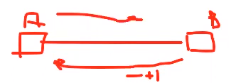 A B
-+1